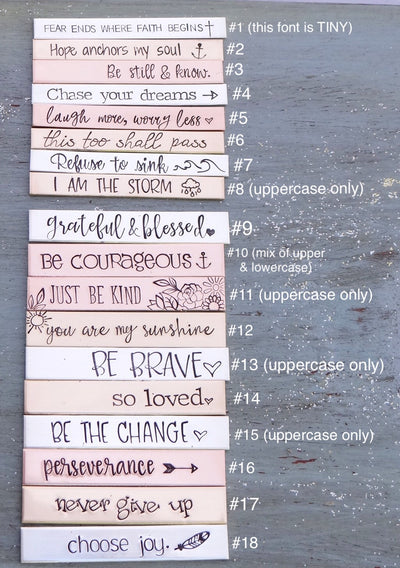 FEAR ENDS WHERE FAITH BEGINS #1 (this font is TINY)
Hope anchors my soul #2
Be still & know. #3
Chase your dreams #4
laugh more, worry less #5
this too shall pass #6
Refuse to sink #7
I AM THE STORM #8 (uppercase only)
grateful & blessed #9
Be courageous #10 (mix of upper
& lowercase)
JUST BE KIND #11 (uppercase only)
you are my sunshine #12
BE BRAVE #13 (uppercase only)
so loved #14
BE THE CHANGE #15 (uppercase only)
perseverance #16
never give up #17
choose joy. #18